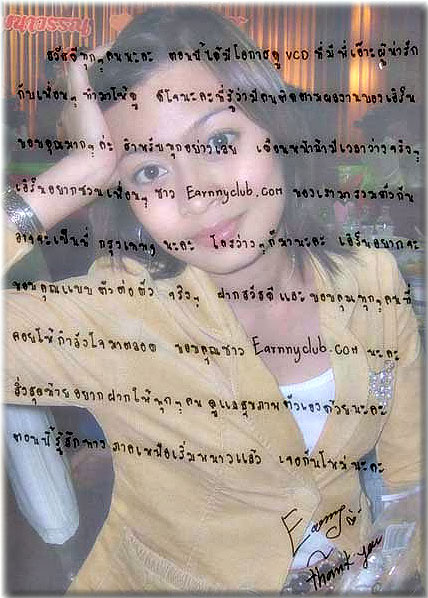 สวัสดีทุกๆคนนะคะ ตอนนี้ได้มีโอกาสดู VCD ที่มีพี่เอ๊าะผู้น่ารัก
กับเพื่อนๆ ทำมาให้ดู ดีใจนะคะที่รู้ว่ามีคนติดตามผลงานของเอิร์น
ขอบคุณมากๆค่ะ สำหรับทุกอย่างเลย เดือนหน้าถ้ามีเวลาว่างจริงๆ
เอิร์นอยากชวนเพื่อนๆ ชาว Earnnyclub.com ของเรามารวมตัวกัน
อาจจะเป็นที่ กรุงเทพฯ นะคะ ใครว่างๆก็มานะคะ เอิร์นอยากจะ
ขอบคุณแบบ ตัวต่อตัว จริงๆ ฝากสวัสดี และ ขอบคุณทุกๆคนที่
คอยให้กำลังใจมาตลอด ขอบคุณชาว Earnnyclub.com นะคะ
สิ่งสุดท้ายอยากฝากให้ทุกๆคน ดูแลสุขภาพตัวเองด้วยนะคะ
ตอนนี้รู้สึกทาง ภาคเหนือเริ่มหนาวแล้ว เจอกันใหม่นะคะ
Earnny
Thank you